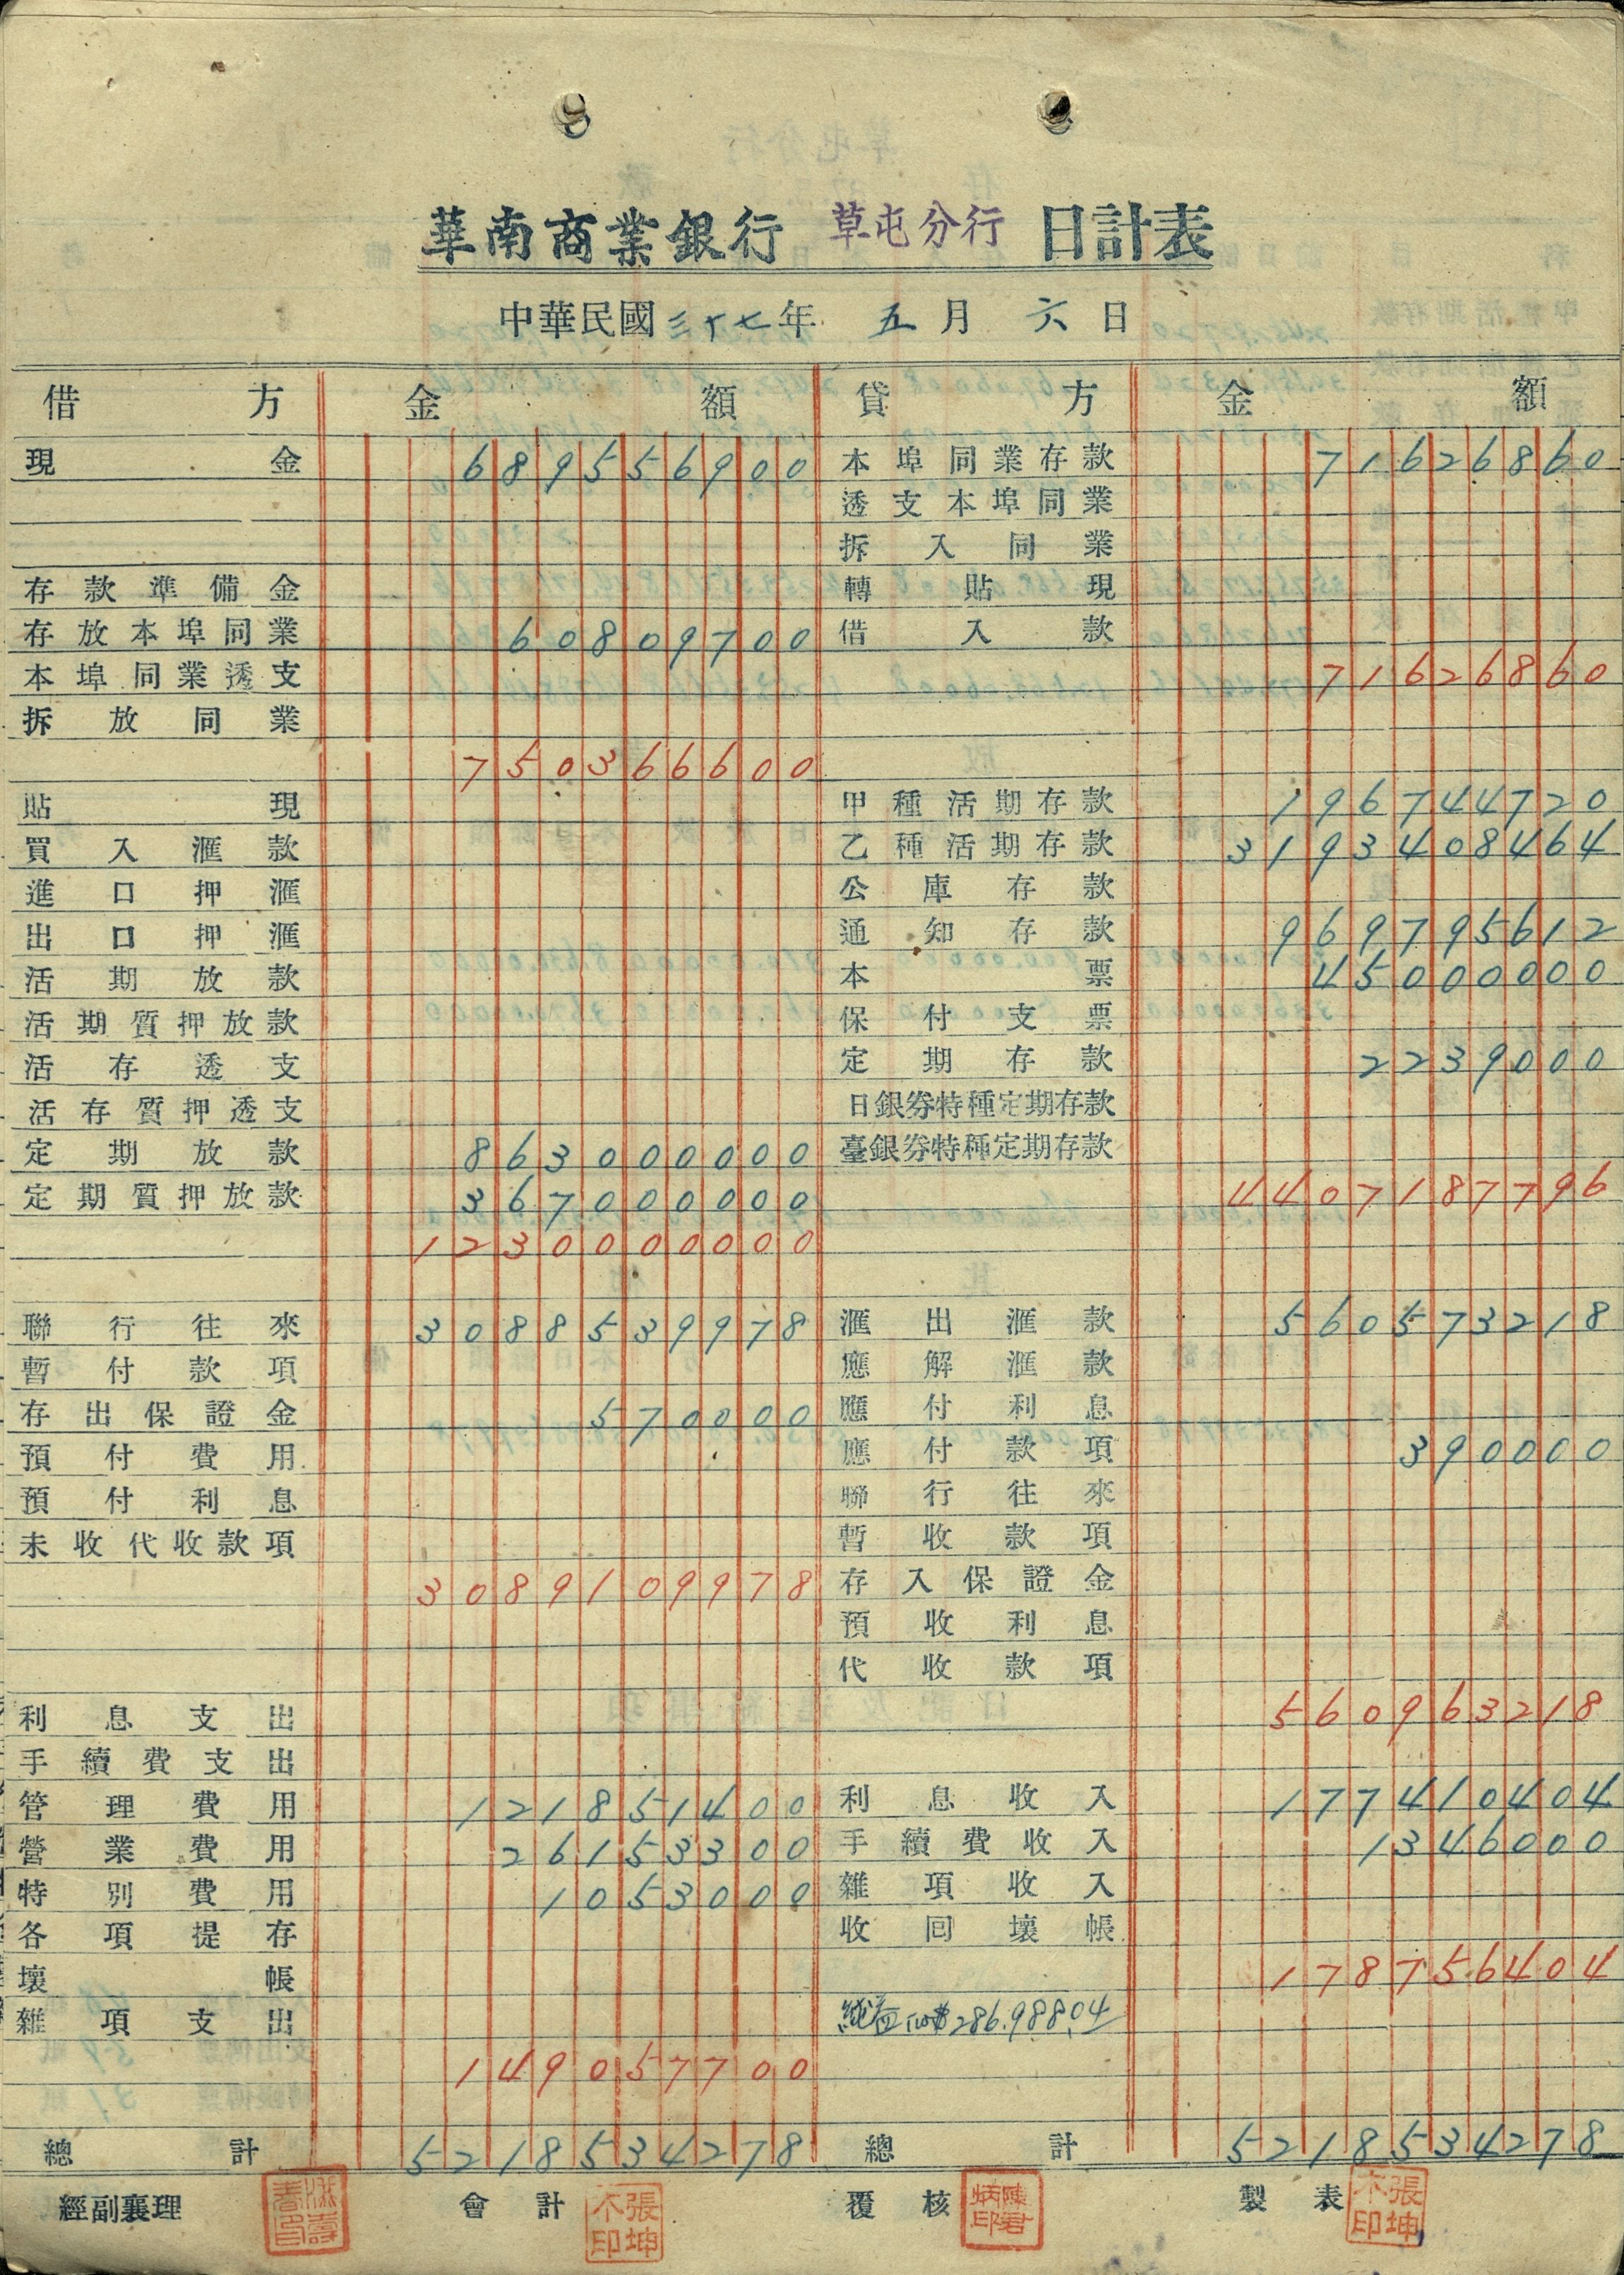 華南商業銀行 草屯分行 日計表
中華民國三十七年 五月 六日
借方 金額 貸方 金額
現金 689556900 本埠同業存款 71626860
透支本埠同業
拆入同業
存款準備金 轉貼現
存放本埠同業 60809700 借入款
本埠同業透支 71626860
拆放同業
750366600
貼現 甲種活期存款 196744720
買入滙款 乙種活期存款 3193408464
進口押滙 公庫存款
出口押滙 通知存款 969795612
活期放款 本票 45000000
活期質押放款 保付支票
活存透支 定期存款 2239000
活存質押透支 日銀券特種定期存款
定期放款 863000000 臺銀券特種定期存款
定期質押放款 367000000 4407187796
1230000000
聯行往來 3088539978 滙出滙款 560573218
暫付款項 應解滙款
存出保證金 570000 應付利息
預付費用 應付款項 390000
預付利息 聯行往來
未收代收款項 暫收款項
3089109978 存入保證金
預收利息
代收款項
利息支出 560963218
手續費支出
管理費用 121851400 利息收入 177410404
營業費用 26153300 手續費收入 1346000
特別費用 1053000 雜項收入
各項提存 收回壞帳
壞帳 178756404
雜項支出 純益 286,988.04
149057700
總計 5218534278 總計 5218534278
經副襄理 會計 張坤木印 覆核 陳君炳印 製表 張坤木印